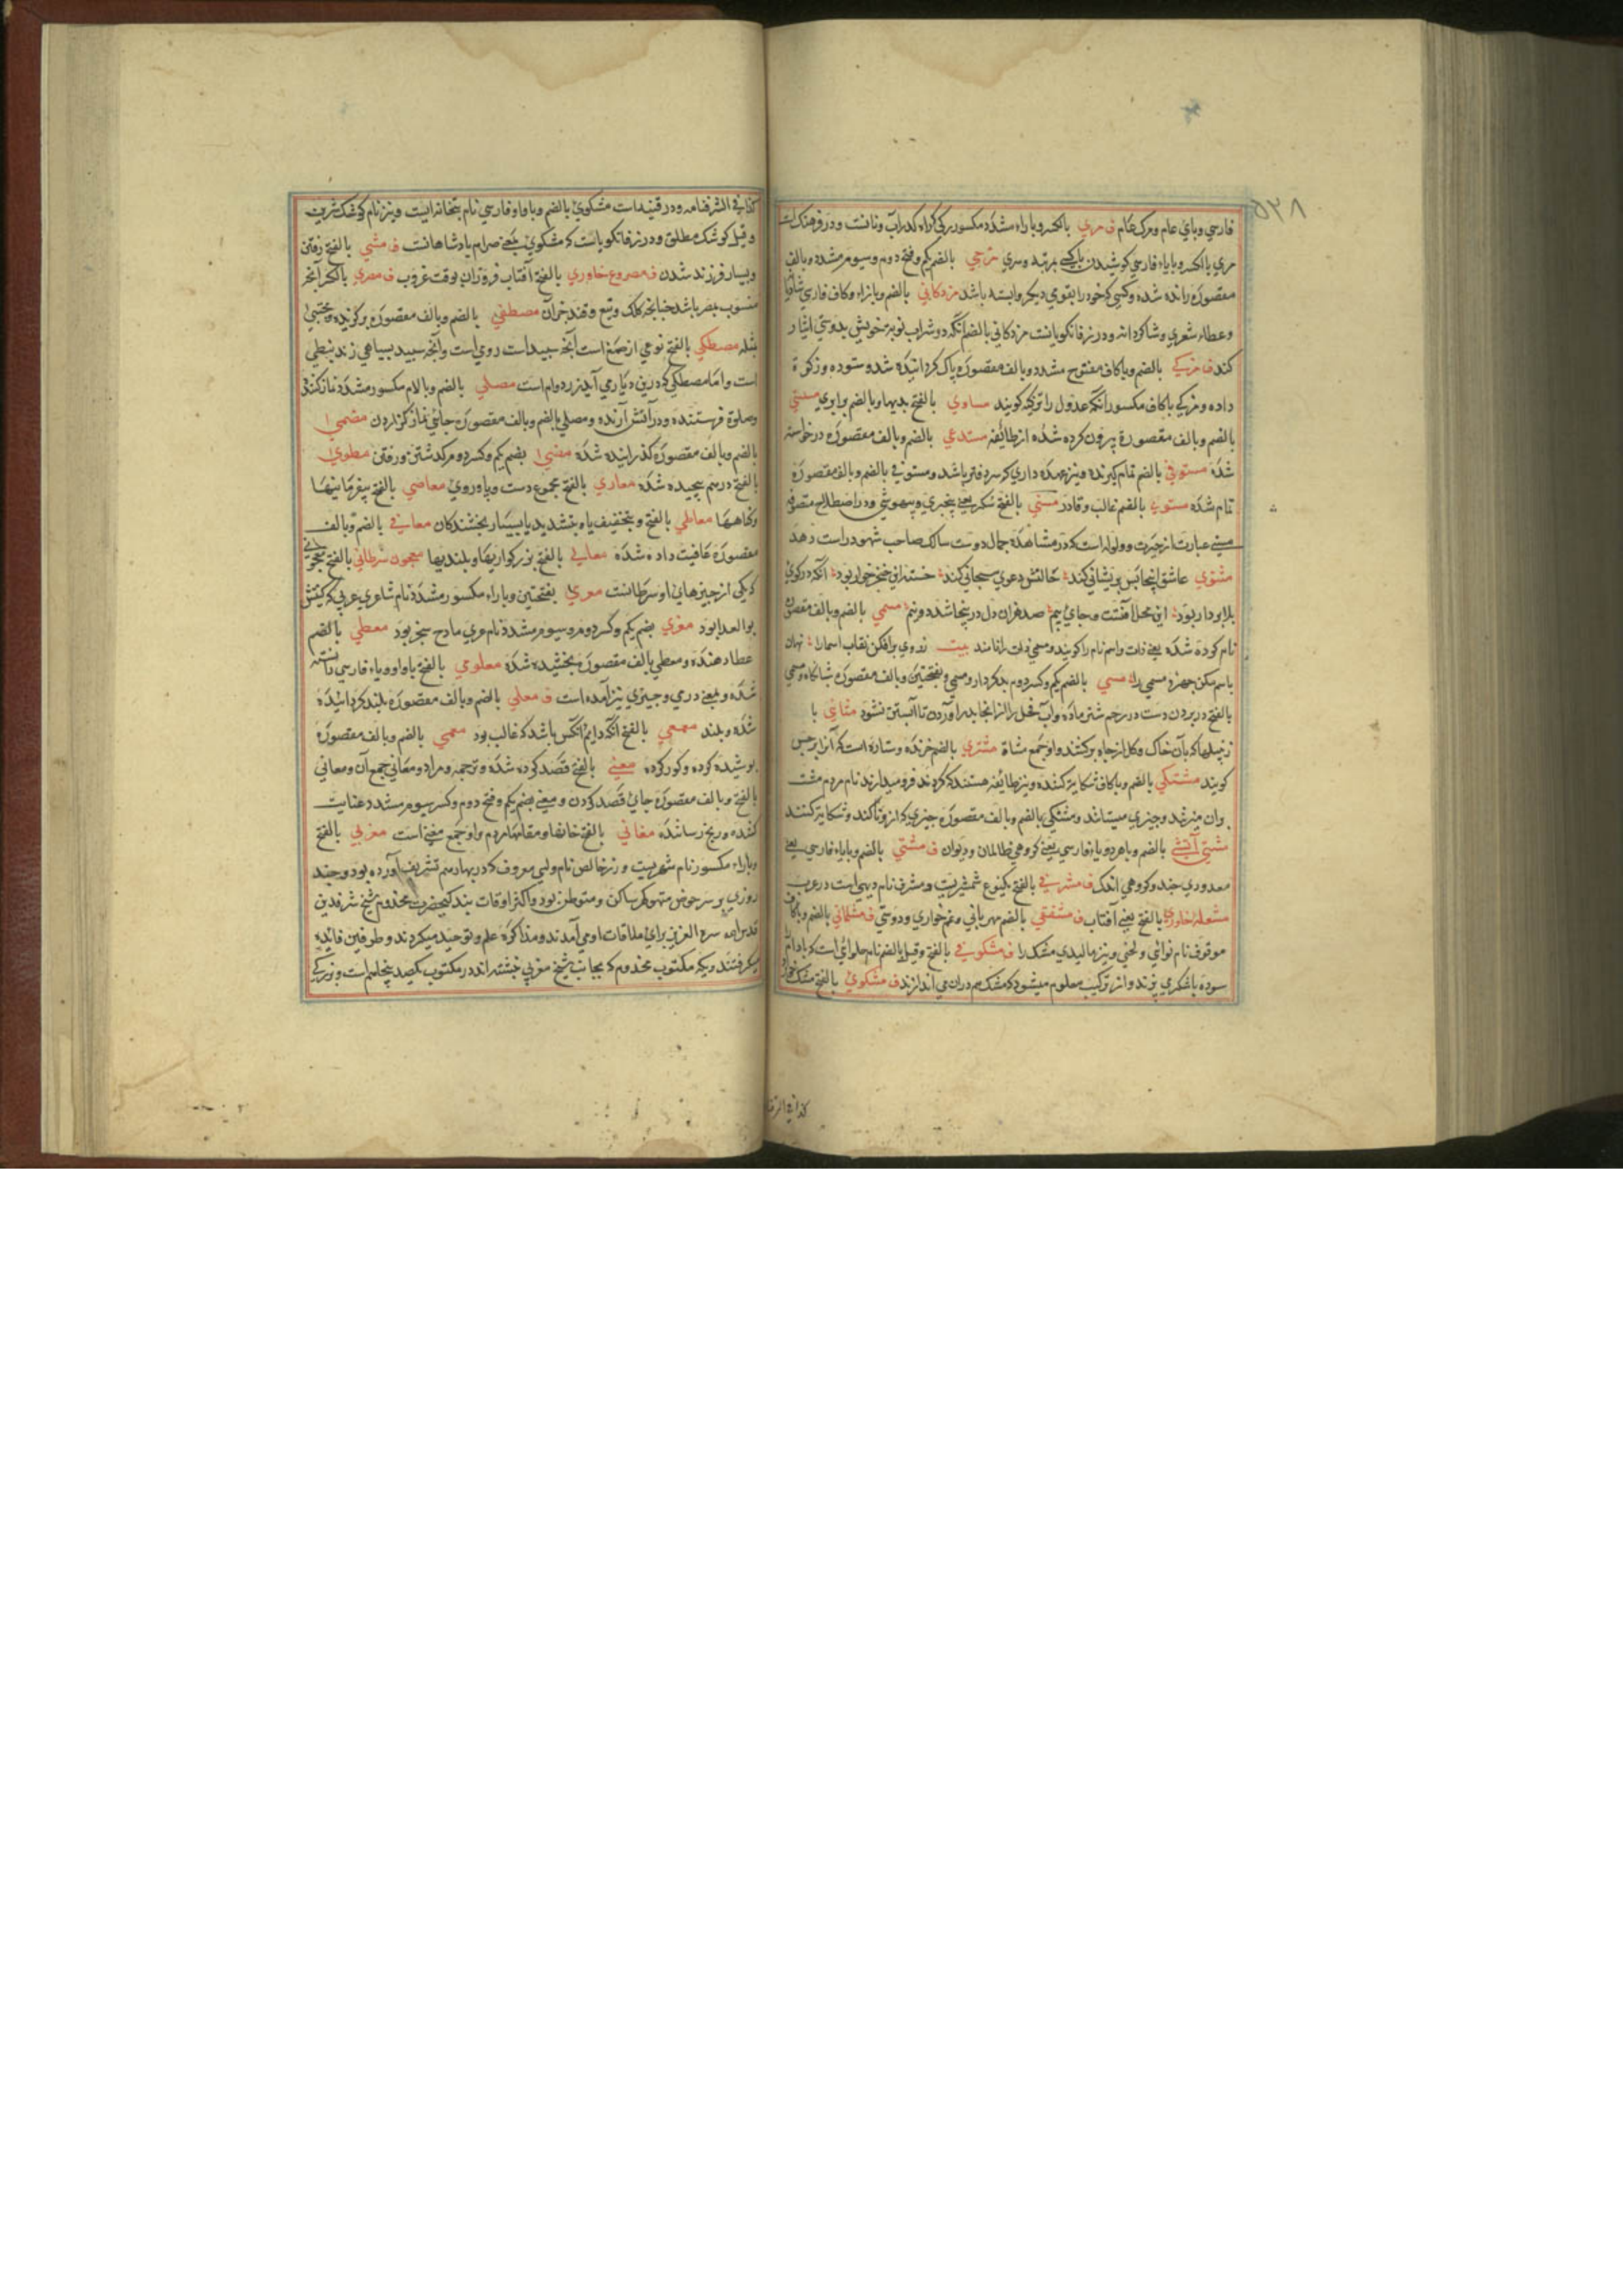 ۵۳۸
فارسي وباي عام ومرك عام ف مري بالكسر وباراء مشدد مكسور بركي كراء كدرآب ونانست ودر فرهنك است
مري باالكسر وبايا فارسي كوشيدن باكسے بمرتبه وسري مزجي بالضم يكم وفتح دوم وسيوم مشدد وبالف
مقصوره رانده شده وكسي كه خود را بقومي ديكر وابسته باشد مزدكاني بالضم وبا زاء وكاف فارسي
وعطاء شعري وشاكردانه ودر زفانكويا نست مزدكاني بالضم آنكه دو شراب نوبه خويش بدوستي ايثار
كند ف مزكي بالضم وباكاف مفتوح مشدد وبالف مقصوره پاك كردانيده شده وستوده وزكوة
داده ومزكي باكاف مكسور آنكه عدول را تزكيه كويند مساوي بالفتح بديها وبالضم برابري مستثني
بالضم وبالف مقصورة بيرون كرده شده از طائفه مستدعي بالضم وبالف مقصوره درخواسته
شده مستوفي بالضم تمام كيرنده ونيز عهده داري كه سر دفتر باشد ومستوفي بالضم وبالف مقصوره
تمام شده مستوي بالضم غالب وقادر مستي بالفتح سكر يعني بيخبري وبيهوشي ودر اصطلاح متصوفه
مستي عبارت از حيرت وولوله است كه در مشاهده جمال دوست سالك صاحب شهود را دست دهد
مثنوي عاشق اينجا بس پريشاني كند حالتش دعوي سبحاني كند خسته اين خنجر خوار بود آنكه در كوي
بلا بردار بود اين محل آفتست وجاي بيم صد هزاران دل درينجا شد دو نيم مسمي بالضم وبالف مقصوره
نام كرده شده يعني ذات واسم نام را كويند ومسمي ذات را نامند بيت ز روي برافكن نقاب اسما را نهان
باسم مكن چهره مسمي را مسي بالضم يكم وكسر دوم بدكردار ومسي وبفتحتين وبالف مقصوره شبانكاه ومسي
بالفتح در بردن دست در رحم شتر ماده وآب فحل را از انجا بدر آوردن تا آبستن نشود مشاي با
زنبيلها كه بآن خاك وكل از چاه بركشند واو جمع مشاة مشتري بالضم خرنده وستاره است كه آنرا برجيس
كويند مشتكي بالضم وباكاف شكايت كننده ونيز طائفه هستند كه كردند فرو ميدارند نام مردم مشت
وآن ميزند وچيزي ميستانند ومشتكي بالضم وبالف مقصوره چيزي كه ازو تا كند وشكايت كنند
مشتي آتشي بالضم وباهردو ياء فارسي يعني كروهي ظالمان وديوان ف مشتي بالضم وباياء فارسي يعني
معدودي چند وكروهي اندك ف مشرفي بالفتح يكنوع شمشيريست ومشرف نام ديهي است در عرب
مشعله خاوري بالفتح يعني آفتاب ف مشفقي بالضم مهرباني وغم خواري ودوستي ف مشكماني بالضم وباكاف
موقوف نام نوائي ولحني ونيز ماليدي مشك را ف مشكوفي بالفتح وقيل بالضم نام حلوائي است كه بادام
سوده باشكري پزند واز تركيب معلوم ميشود كه مشك هم دران مي اندازند ف مشكوي بالفتح مشك
كذا في الشرفنامه
كذا في الشرفنامه ودر قنيه است مشكوي بالضم وباواو فارسي نام بتخانه ايست ونيز نام كوشك شيرين
وقيل كوشك مطلق ودر زفانكويا است كه مشكوي يعني حرام پادشاهانست ف مشي بالفتح رفتن
وبسيار فرزند شدن ف مصروع خاوري بالفتح آفتاب فروزان بوقت غروب ف مصري بالكسر آنچه
منسوب بمصر باشد چنانچه كلك وتيغ وقند جز آن مصطفي بالضم وبالف مقصوره بركزيده ومجتبي
مثله مصطكي بالفتح نوعي از صمغ است آنچه سپيد است رومي است وآنچه سپيد بسياهي زند نبطي
است واما مصطكي كه درين ديار مي آيد زرد وام است مصلي بالضم وبالام مكسور مشدد نماز كننده
وصلوة فرستنده ودر آتش آرنده ومصلي بالضم وبالف مقصوره جاي نماز كزاردن مضمي
بالضم وبالف مقصوره كذرانيده شده مضي بضم يكم وكسر دوم بركذشتن ورفتن مطوي
بالفتح درهم پيچيده شده معاري بالفتح مجموع دست وپا وروي معاصي بالفتح بيفرمانيها
وكناهها معاطي بالفتح وبتخفيف ياء وبتشديد يا بسيار بخشندكان معافي بالضم وبالف
مقصوره عافيت داده شده معالي بالفتح بزركواريها وبلنديها معجون سرطاني بالفتح معجوني
كه يكي از چيزهاي او سرطانست معري بفتحتين وباراء مكسور مشدد نام شاعري عربي كه كنيتش
بوالعلا بود معزي بضم يكم وكسر دوم وسيوم مشدد نام مري مادح سنجر بود معطي بالضم
عطا دهنده ومعطي بالف مقصوره بخشيده شده معلومي بالفتح باواو وياء فارسي دانسته
شده وبمعني دري وچيزي نيز آمده است ف معلي بالضم وبالف مقصوره بلند كردانيده
شده وبلند معمعي بالفتح آنكه دايم آنكس باشد كه غالب بود معمي بالضم وبالف مقصوره
پوشيده كرده وكور كرده معني بالفتح قصد كرده شده وترجمه ومراد ومعاني جمع آن ومعاني
بالفتح وبالف مقصوره جاي قصد كردن ومعني بضم يكم وفتح دوم وكسر سيوم مشدد عنايت
كننده ورنج رساننده مغاني بالفتح خانها ومقامها مردم واو جمع مغني است مغربي بالفتح
وباراء مكسور نام شهريست وزر خالص نام ولي معروف كه در بهار هم تشريف آورده بود وچند
روزي بر سر حوض متهوكر ساكن ومتوطن بود واكثر اوقات بندكي حضرت مخدوم شيخ شرفدين
قدس الله سره العزيز براي ملاقات او مي آمدند ومذاكره علم وتوحيد ميكردند وطرفين فائده
ميكرفتند ويكه مكتوب مخدوم كه بجانب شيخ مغربي نبشته اند در مكتوب يكصد پنجاهم است وبزركي